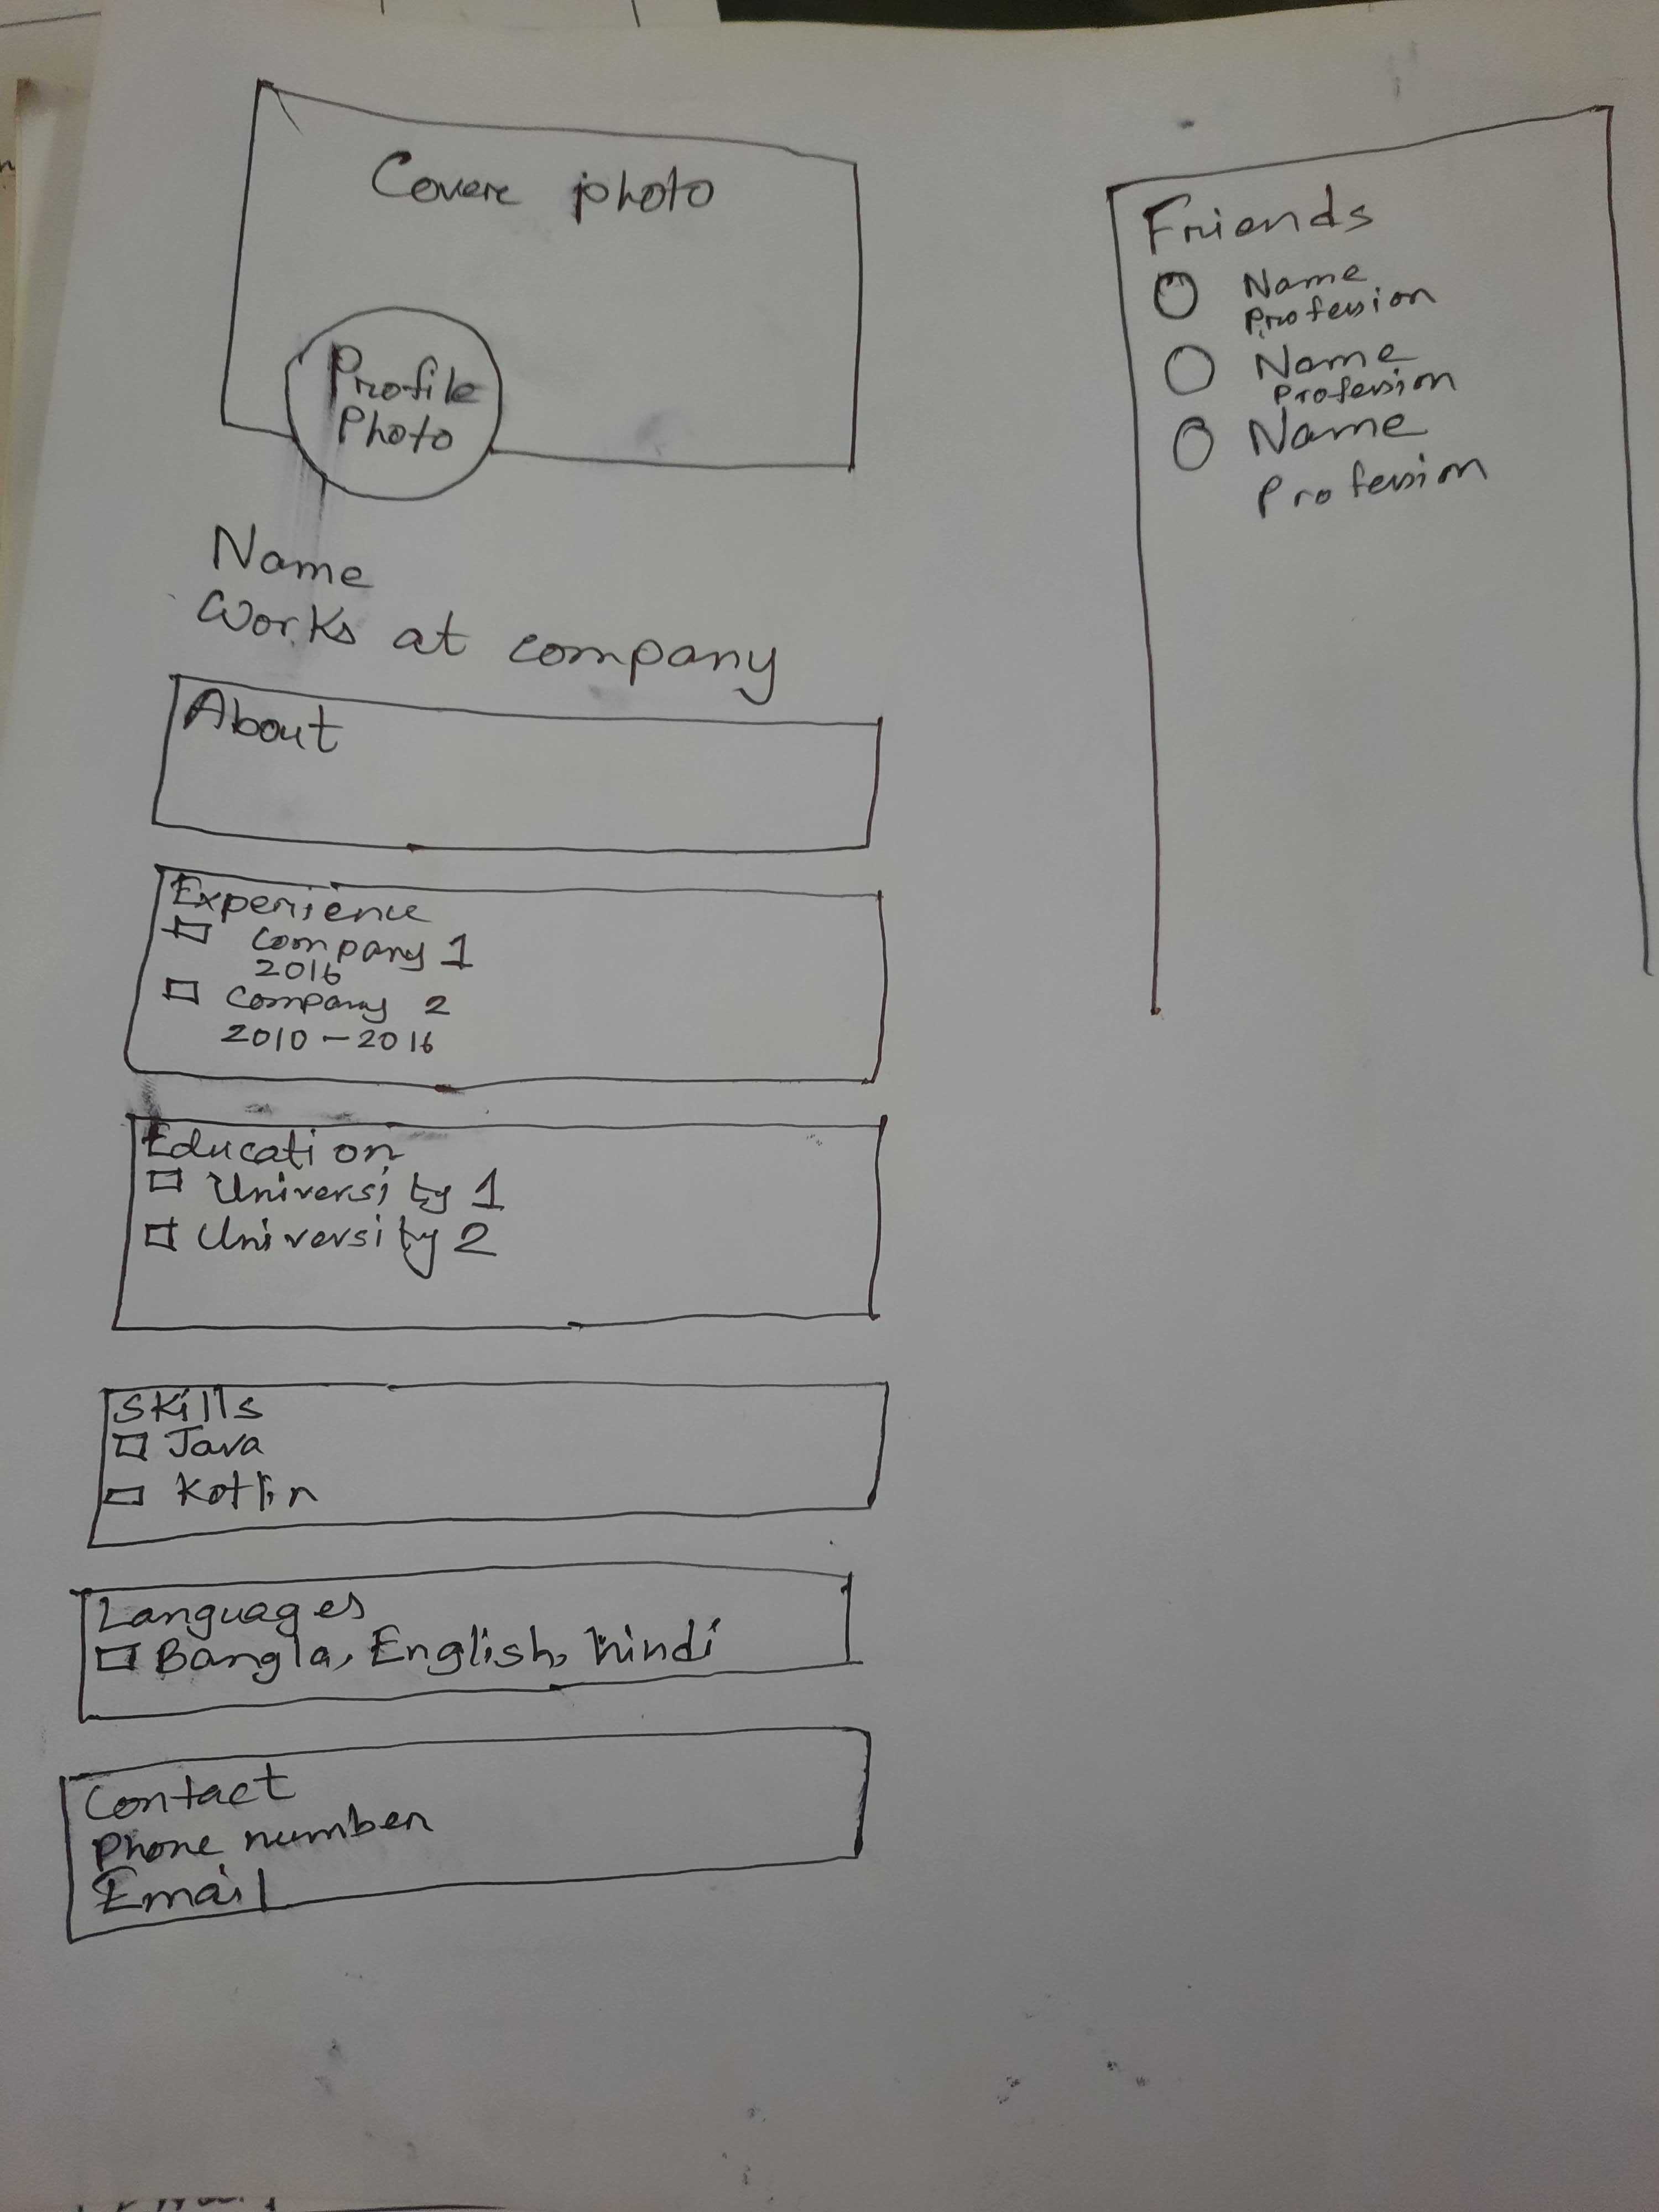 Cover photo
Profile
Photo
Name
Works at company
About
Experience
Company 1
2016
Company 2
2010 - 2016
Education
University 1
University 2
Skills
Java
Kotlin
Languages
Bangla, English, hindi
Contact
Phone number
Email
Friends
Name
Profession
Name
Profession
Name
Profession